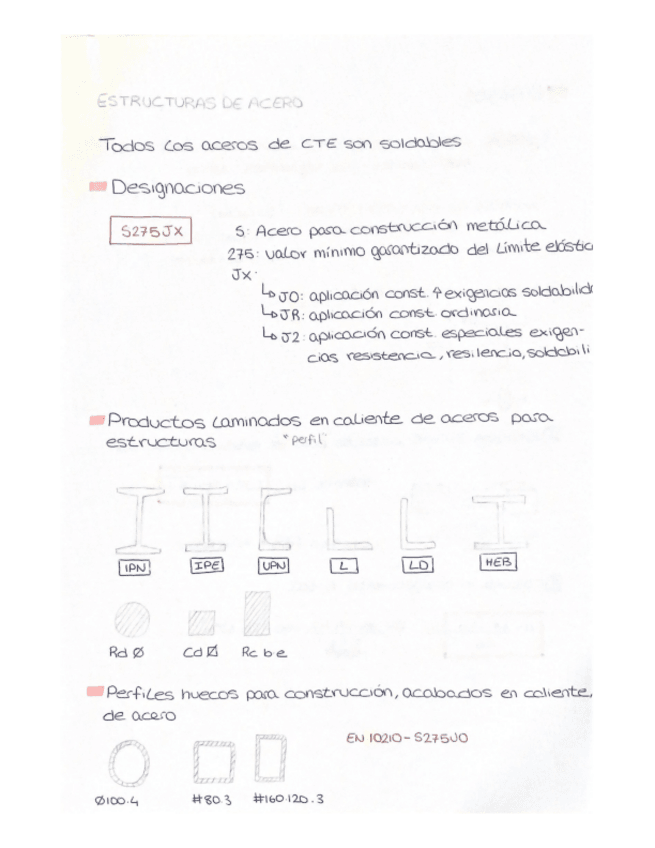 ESTRUCTURAS DE ACERO
Todos los aceros de CTE son soldables
Designaciones
S275JX
S: Acero para construcción metálica
275: valor mínimo garantizado del Límite elástic
JX
JO: aplicación const. ↑ exigencias soldabilid
JR: aplicación const ordinaria
J2: aplicación const. especiales exigen-
cias resistencia, resilencia, soldabili
Productos Laminados en caliente de aceros para
estructuras "perfil"
IPN IPE UPN L LD HEB
Rd Ø Cd Rc b·e
Perfiles huecos para construcción, acabados en caliente,
de acero
EN 10210-S275JO
Ø100·4 #80·3 #160·120·3